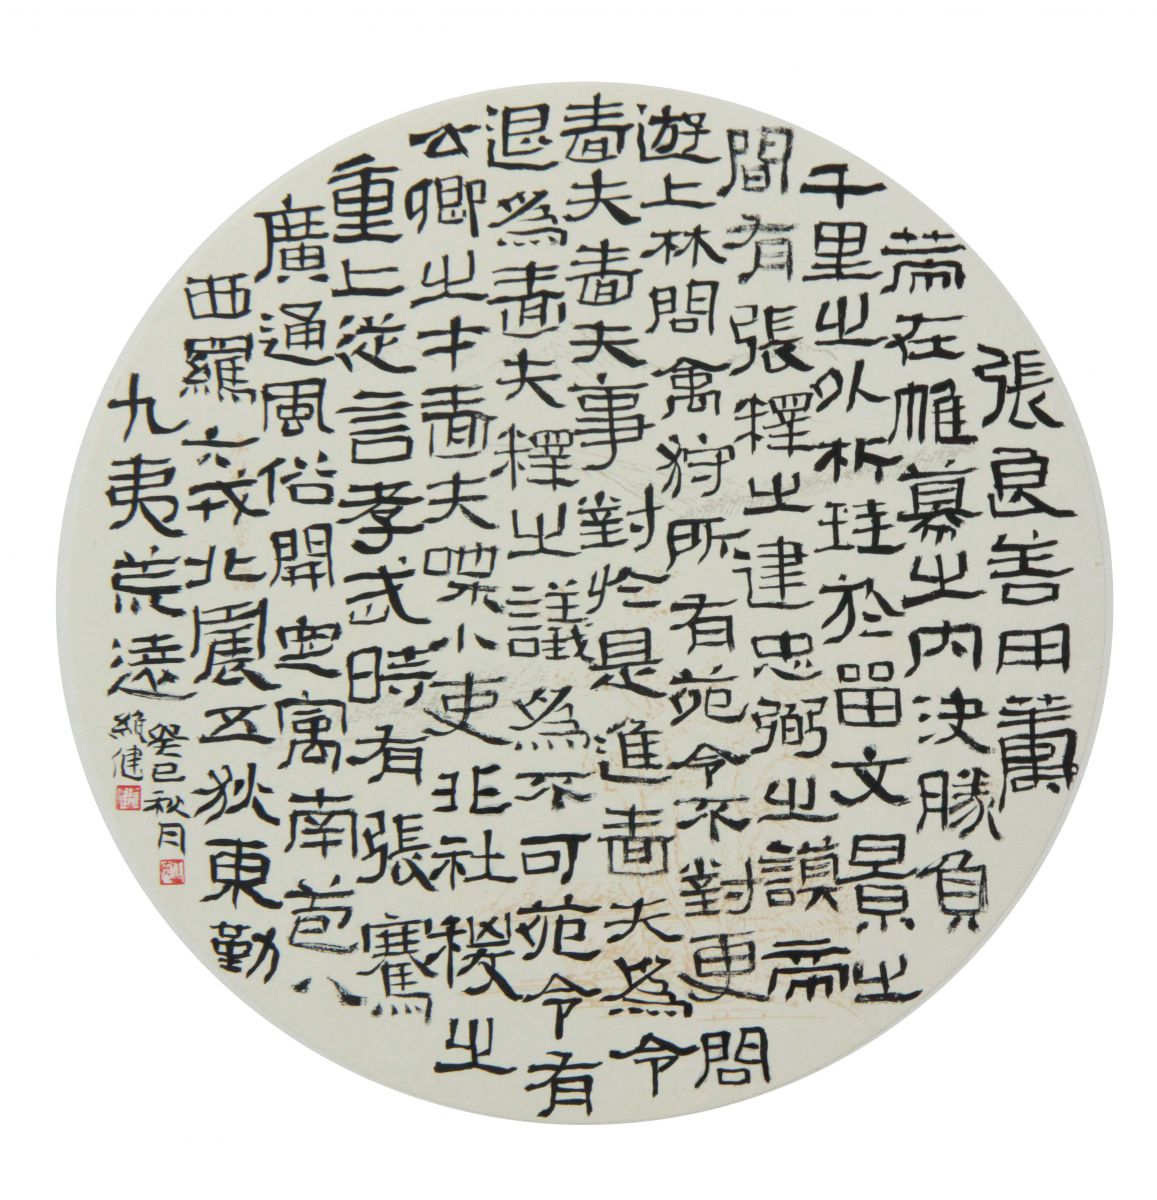 張良善用籌
策在帷幕之內決勝負
千里之外析珪於留文景之
間有張釋之建忠弼之謨帝
遊上林問禽狩所有苑令不對更問
嗇夫嗇夫事對於是進嗇夫為令
退為嗇夫釋之議為不可苑令有
公卿之才嗇夫喋小吏非社稷之
重上從言孝武時有張騫
廣通風俗開定寓南苞八
西羈六戎北震五狄東勤
九夷荒遠
癸巳秋月
維健